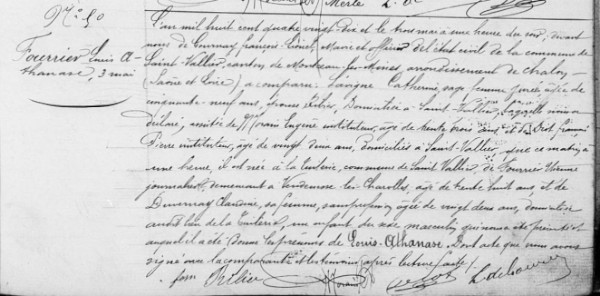 N° 50
Fourrier Louis A-
thanase, 3 mai
L'an mil huit cent quatre vingt dix et le trois mai a une heure du soir; devant
nous de Cournay François Lionel, Maire et officier de l'état civil de la commune de
Saint-Vallier, canton de Montceau-les-Mines, arrondissement de Chalon-
(Saône et Loire) a comparu Langue Catherine, sage femme jurée, âgée de
cinquante-neuf ans, domiciliée à Saint-Vallier, laquelle nous a
déclaré, assistée de Morain Eugène instituteur, âgé de trente trois ans et de français
Pierre instituteur, âgé de vingt deux ans, domiciliés à Saint-Vallier, que ce matin à
une heure, il est né à la Tuilerie, commune de Saint Vallier, de Fourrier Etienne
journalier, demeurant à Vendenesse-les-Charolles, âgé de trente huit ans et de
Claudine, sa femme, sans profession, âgée de vingt deux ans, domiciliée
audit lieu de la Tuilerie, un enfant du sexe masculin qui nous a été présenté et
auquel il a été donné les prénoms de Louis-Athanase. Dont acte que nous avons
signé avec la comparante et les témoins après lecture faite.
fem Morain